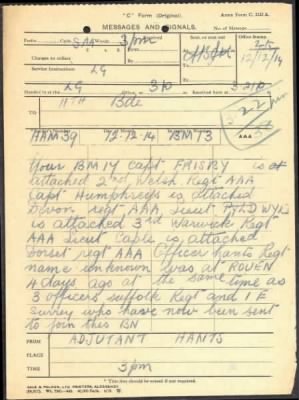 "C" Form (Original).
Army Form C. 2121 A.
MESSAGES AND SIGNALS.
No. of Message
Prefix Code Words 3pm
Sent, or sent out
Office Stamp
Charges to collect
12/12/14
Service Instructions: LG
Handed in at the LG Office at 3 p m. Received here at 3.21 p m.
TO 11TH Bde
3.22 pm
HAM 39 12-12-14 BM 13 AAA
Your BM 14 Capt. FRISBY is at
attached 2nd Welsh Regt AAA
Capt Humphreys is attached
Devon regt AAA Lieut
is attached 3rd Warwick Regt
AAA Lieut Caple is attached
Dorset regt AAA Officer hants Regt
name unknown was at ROUEN
4 days ago at the same time as
3 officers suffolk Regt and 1 E
Surrey who have now been sent
to join this BN
FROM ADJUTANT HANTS
PLACE
TIME 3pm
* This line should be erased if not required.